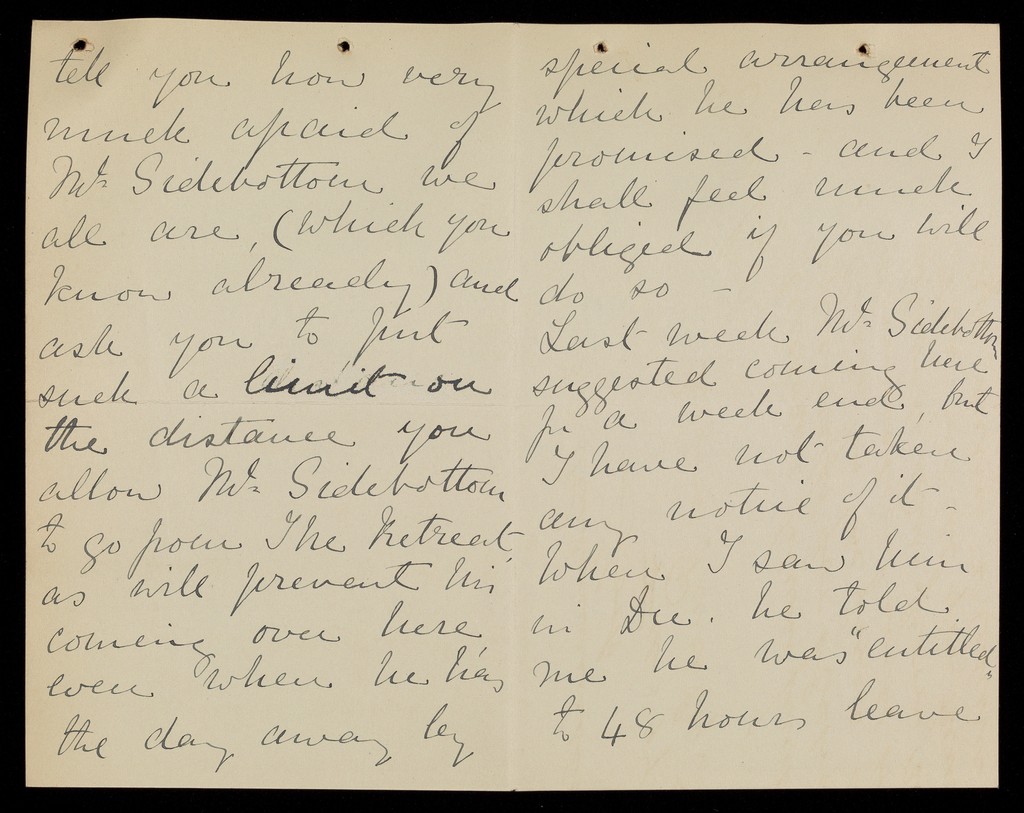 tell you how very
much afraid of
Mr Sidebottom we
all are, (which you
know already) and
ask you to put
such a limit on
the distance you
allow Mr Sidebottom
to go from The Retreat,
as will prevent his
coming over here
even when he has
the day away by
special arrangement
which he has been
promised - and I
shall feel much
obliged if you will
do so -
Last week Mr Sidebottom
suggested coming here
for a week end, but
I have not taken
any notice of it -
When I saw him
in Dec. he told
me he was "entitled"
to 48 hours leave